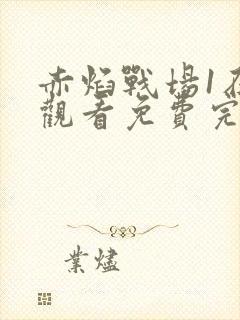 赤焰戰場1在
觀看免費完
業燼